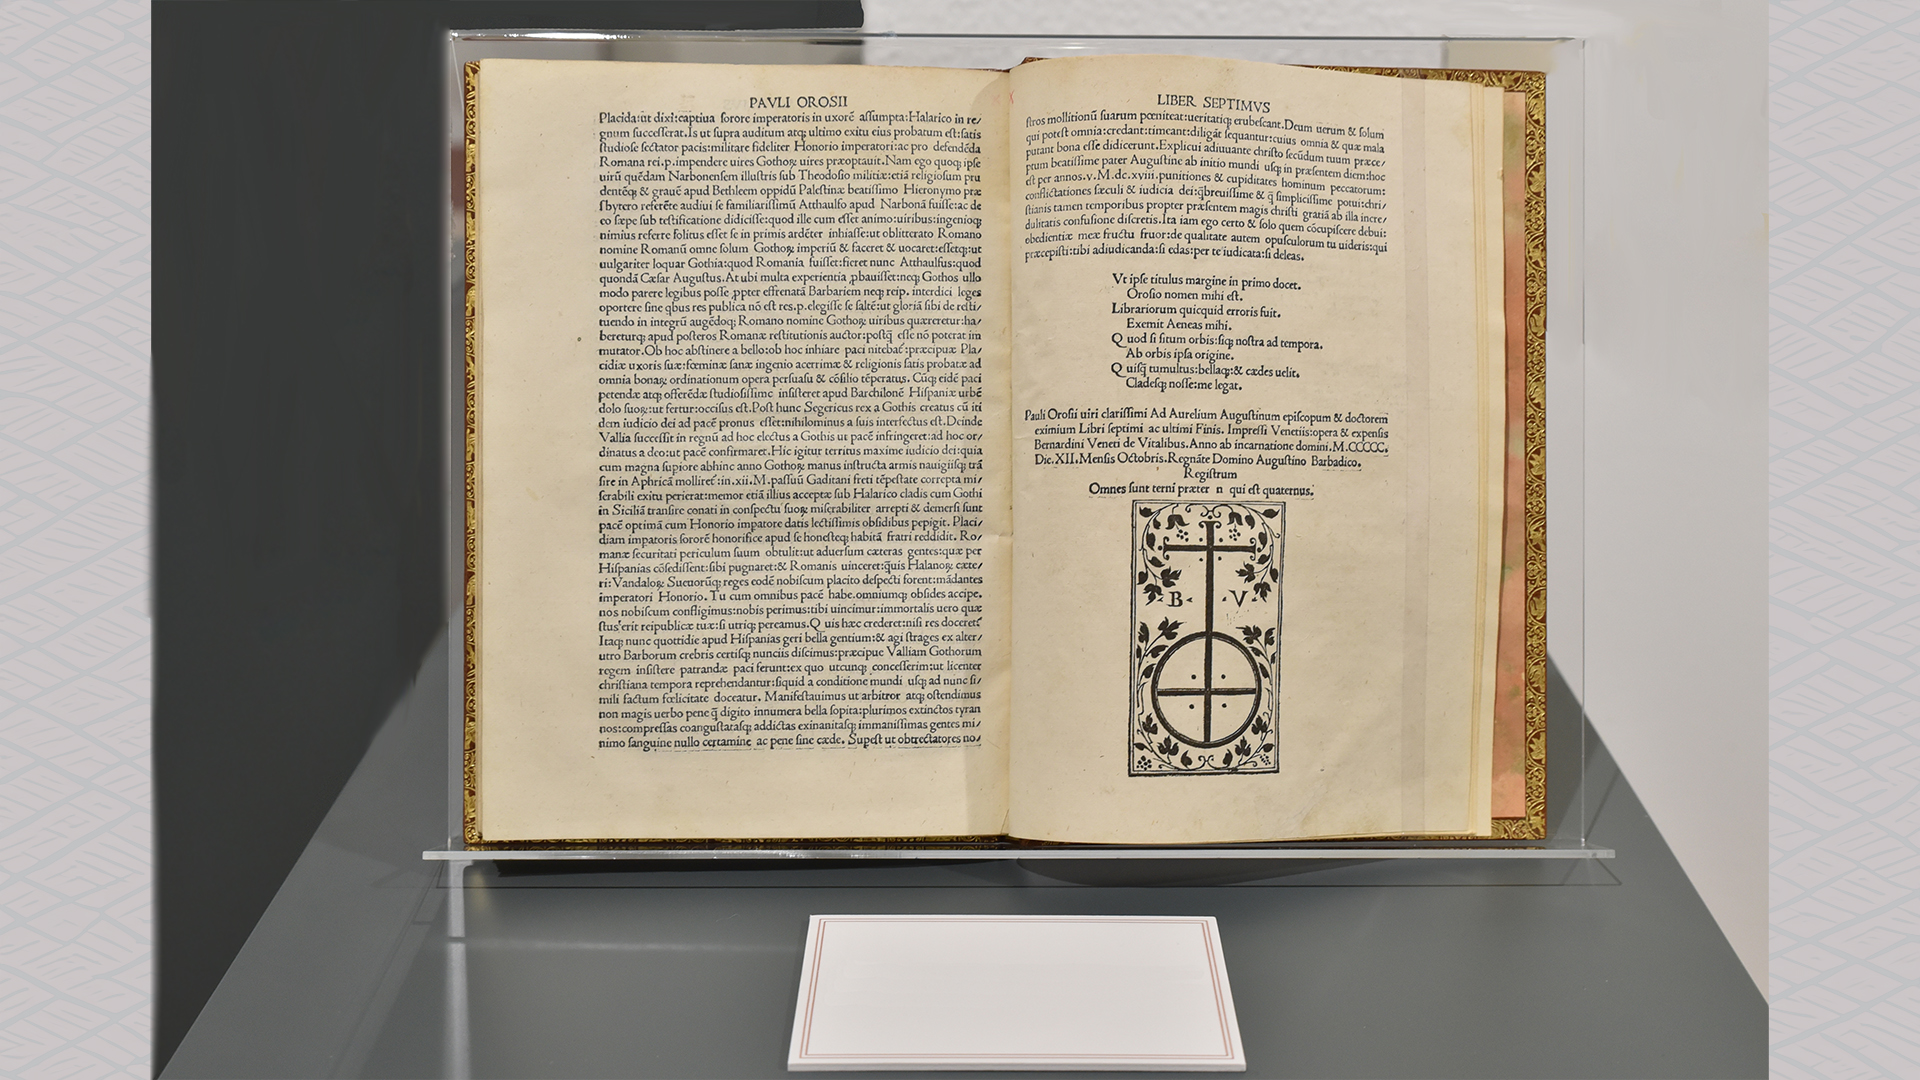 PAVLI OROSII
Placida:ut dixi:captiua sorore imperatoris in uxorē assumpta:Halarico in re/
gnum successerat.Is ut supra auditum atq; ultimo exitu eius probatum est:satis
studiose sectator pacis:militare fideliter Honorio imperatori:ac pro defendēda
Romana rei.p.impendere uires Gothoꝝ uires præoptauit.Nam ego quoq; ipse
uirū quēdam Narbonensem illustris sub Theodosio militiæ:etiā religiosum pru
dentēq; & grauē apud Bethleem oppidū Palestinæ beatissimo Hieronymo præ
sbytero referēte audiui se familiarissimū Atthaulfo apud Narbonā fuisse:ac de
eo sæpe sub testificatione didicisse:quod ille cum esset animo:uiribus:ingenioq;
nimius referre solitus esset se in primis ardēter inhiasse:ut oblitterato Romano
nomine Romanū omne solum Gothoꝝ imperiū & faceret & uocaret:essetq;:ut
uulgariter loquar Gothia:quod Romania fuisset:fieret nunc Atthaulfus:quod
quondā Cæsar Augustus.At ubi multa experientia ꝓbauisset:neq; Gothos ullo
modo parere legibus posse ꝓpter effrenatā Barbariem neq; reip. interdici leges
oportere sine qbus res publica nō est res.p.elegisse se saltē:ut gloriā sibi de resti/
tuendo in integrū augēdoq; Romano nomine Gothoꝝ uiribus quæreretur:ha/
bereturq; apud posteros Romanæ restitutionis auctor:postq̄ esse nō poterat im
mutator.Ob hoc abstinere a bello:ob hoc inhiare paci nitebať:præcipuæ Pla/
cidiæ uxoris suæ:fœminæ sanæ ingenio acerrimæ & religionis satis probatæ ad
omnia bonaꝝ ordinationum opera persuasu & cōsilio tēperatus. Cūq; eidē paci
petendæ atq; offerēdæ studiosissime insisteret apud Barchilonē Hispaniæ urbē
dolo suoꝝ:ut fertur:occisus est.Post hunc Segericus rex a Gothis creatus cū iti
dem iudicio dei ad pacē pronus esset:nihilominus a suis interfectus est.Deinde
Vallia successit in regnū ad hoc electus a Gothis ut pacē infringeret:ad hoc or/
dinatus a deo:ut pacē confirmaret.Hic igitur territus maxime iudicio dei:quia
cum magna supiore abhinc anno Gothoꝝ manus instructa armis nauigiisq; trā
sire in Aphricā molliret̄:in.xii.M.passuū Gaditani freti tēpestate correpta mi/
serabili exitu perierat:memor etiā illius acceptæ sub Halarico cladis cum Gothi
in Siciliā transire conati in conspectu suoꝝ miserabiliter arrepti & demersi sunt
pacē optimā cum Honorio impatore datis lectissimis obsidibus pepigit. Placi/
diam impatoris sororē honorifice apud se honesteq; habitā fratri reddidit. Ro/
manæ securitati periculum suum obtulit:ut aduersum cæteras gentes:quæ per
Hispanias cōsedissent:sibi pugnaret:& Romanis uinceret:q̄uis Halanoꝝ cæte/
ri:Vandaloꝝ Sueuorūq; reges eodē nobiscum placito despecti forent:mādantes
imperatori Honorio.Tu cum omnibus pacē habe.omniumq; obsides accipe.
nos nobiscum confligimus:nobis perimus:tibi uincimur:immortalis uero quæ
stus erit reipublicæ tuæ:si utriq; pereamus.Q uis hæc crederet:nisi res doceret
Itaq; nunc quottidie apud Hispanias geri bella gentium:& agi strages ex alter/
utro Barborum crebris certisq; nunciis discimus:præcipue Valliam Gothorum
regem insistere patrandæ paci ferunt:ex quo utcunq; concesserim:ut licenter
christiana tempora reprehendantur:siquid a conditione mundi usq; ad nunc si/
mili factum fœlicitate doceatur. Manifestauimus ut arbitror atq; ostendimus
non magis uerbo pene q̄ digito innumera bella sopita:plurimos extinctos tyran
nos:compressas coangustatasq; addictas exinanitasq; immanissimas gentes mi/
nimo sanguine nullo certamine ac pene sine cæde. Supest ut obtrectatores no/
LIBER SEPTIMVS
stros mollitionū suarum pœniteat:ueritatiq; erubescant.Deum uerum & solum
qui potest omnia:credant:timeant:diligāt sequantur:cuius omnia & quæ mala
putant bona esse didicerunt.Explicui adiuuante christo secūdum tuum præce/
ptum beatissime pater Augustine ab initio mundi usq; in præsentem diem:hoc
est per annos.v.M.dc.xviii.punitiones & cupiditates hominum peccatorum:
conflictationes sæculi & iudicia dei:q̄breuissime & q̄ simplicissime potui:chri/
stianis tamen temporibus propter præsentem magis christi gratiā ab illa incre/
dulitatis confusione discretis.Ita iam ego certo & solo quem cōcupiscere debui:
obedientiæ meæ fructu fruor:de qualitate autem opusculorum tu uideris:qui
præcepisti:tibi adiudicanda:si edas:per te iudicata:si deleas.
Vt ipse titulus margine in primo docet.
Orosio nomen mihi est.
Librariorum quicquid erroris fuit.
Exemit Aeneas mihi.
Q uod si situm orbis:siq; nostra ad tempora.
Ab orbis ipsa origine.
Q uisq; tumultus:bellaq;:& cædes uelit.
Cladesq; nosse:me legat.
Pauli Orosii uiri clarissimi Ad Aurelium Augustinum episcopum & doctorem
eximium Libri septimi ac ultimi Finis. Impressi Venetiis:opera & expensis
Bernardini Veneti de Vitalibus.Anno ab incarnatione domini.M.CCCCC.
Die.XII.Mensis Octobris.Regnāte Domino Augustino Barbadico.
Registrum
Omnes sunt terni præter n qui est quaternus.
B V